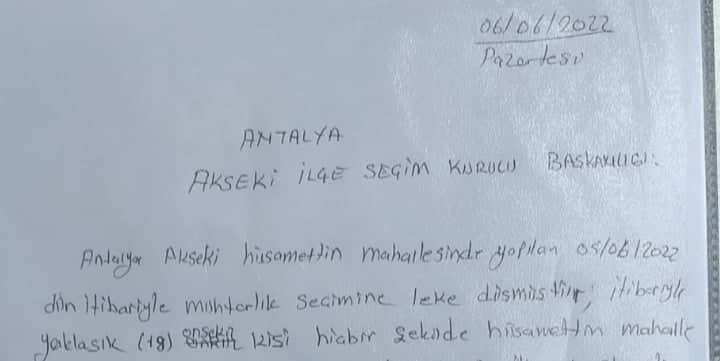 06/06/2022
Pazartesi
ANTALYA
AKSEKİ İLÇE SEÇİM KURULU BAŞKANLIĞI.
Antalya Akseki hüsamettin mahallesinde yapılan 05/06/2022
dün itibariyle muhtarlık seçimine leke düşmüştür, itibarıyle
yaklaşık (18) onsekiz kişi hiçbir şekilde hüsamettin mahalle